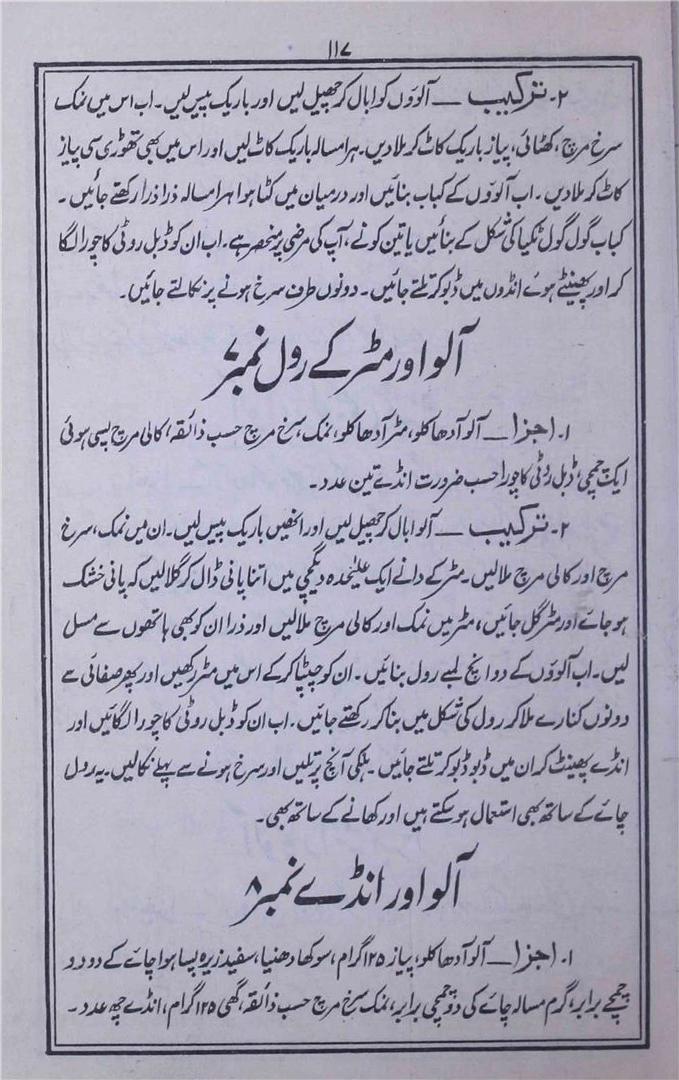 ۱۱۷
۲۔ ترکیب — آلوؤں کو ابال کر چھیل لیں اور باریک پیس لیں۔ اب اس میں نمک
سرخ مرچ، کھٹائی، پیاز باریک کاٹ کر ملا دیں۔ ہرا مسالہ باریک کاٹ لیں اور اس میں بھی تھوڑی سی پیاز
کاٹ کر ملا دیں۔ اب آلوؤں کے کباب بنائیں اور درمیان میں کٹا ہوا ہرا مسالہ ذرا ذرا رکھتے جائیں۔
کباب گول گول ٹکیا کی شکل کے بنائیں یا تین کونے، آپ کی مرضی پر منحصر ہے۔ اب ان کو ڈبل روٹی کا چورا لگا
کر اور پھینٹے ہوئے انڈوں میں ڈبو کر تلتے جائیں۔ دونوں طرف سرخ ہونے پر نکالتے جائیں۔
آلو اور مٹر کے رول نمبر ۷
۱۔ اجزا — آلو آدھا کلو، مٹر آدھا کلو، نمک، سرخ مرچ حسب ذائقہ، کالی مرچ پسی ہوئی
ایک چمچی، ڈبل روٹی کا چورا حسب ضرورت انڈے تین عدد۔
۲۔ ترکیب — آلو ابال کر چھیل لیں اور انھیں باریک پیس لیں۔ ان میں نمک، سرخ
مرچ اور کالی مرچ ملا لیں۔ مٹر کے دانے ایک علیٰحدہ دیگچی میں اتنا پانی ڈال کر گلا لیں کہ پانی خشک
ہو جائے اور مٹر گل جائیں، مٹر میں نمک اور کالی مرچ ملا لیں اور ذرا ان کو بھی ہاتھوں سے مسل
لیں۔ اب آلوؤں کے دو انچ لمبے رول بنائیں۔ ان کو چپٹا کر کے اس میں مٹر رکھیں اور پھر صفائی سے
دونوں کنارے ملا کر رول کی شکل میں بنا کر رکھتے جائیں۔ اب ان کو ڈبل روٹی کا چورا لگائیں اور
انڈے پھینٹ کر ان میں ڈبو ڈبو کر تلتے جائیں۔ ہلکی آنچ پر تلیں اور سرخ ہونے سے پہلے نکالیں۔ یہ رول
چائے کے ساتھ بھی استعمال ہو سکتے ہیں اور کھانے کے ساتھ بھی۔
آلو اور انڈے نمبر ۸
۱۔ اجزا — آلو آدھا کلو، پیاز ۱۲۵ گرام، سوکھا دھنیا، سفید زیرہ پسا ہوا چائے کے دو دو
چمچے برابر، گرم مسالہ چائے کی دو چمچی برابر، نمک سرخ مرچ حسب ذائقہ، گھی ۱۲۵ گرام، انڈے چھ عدد۔